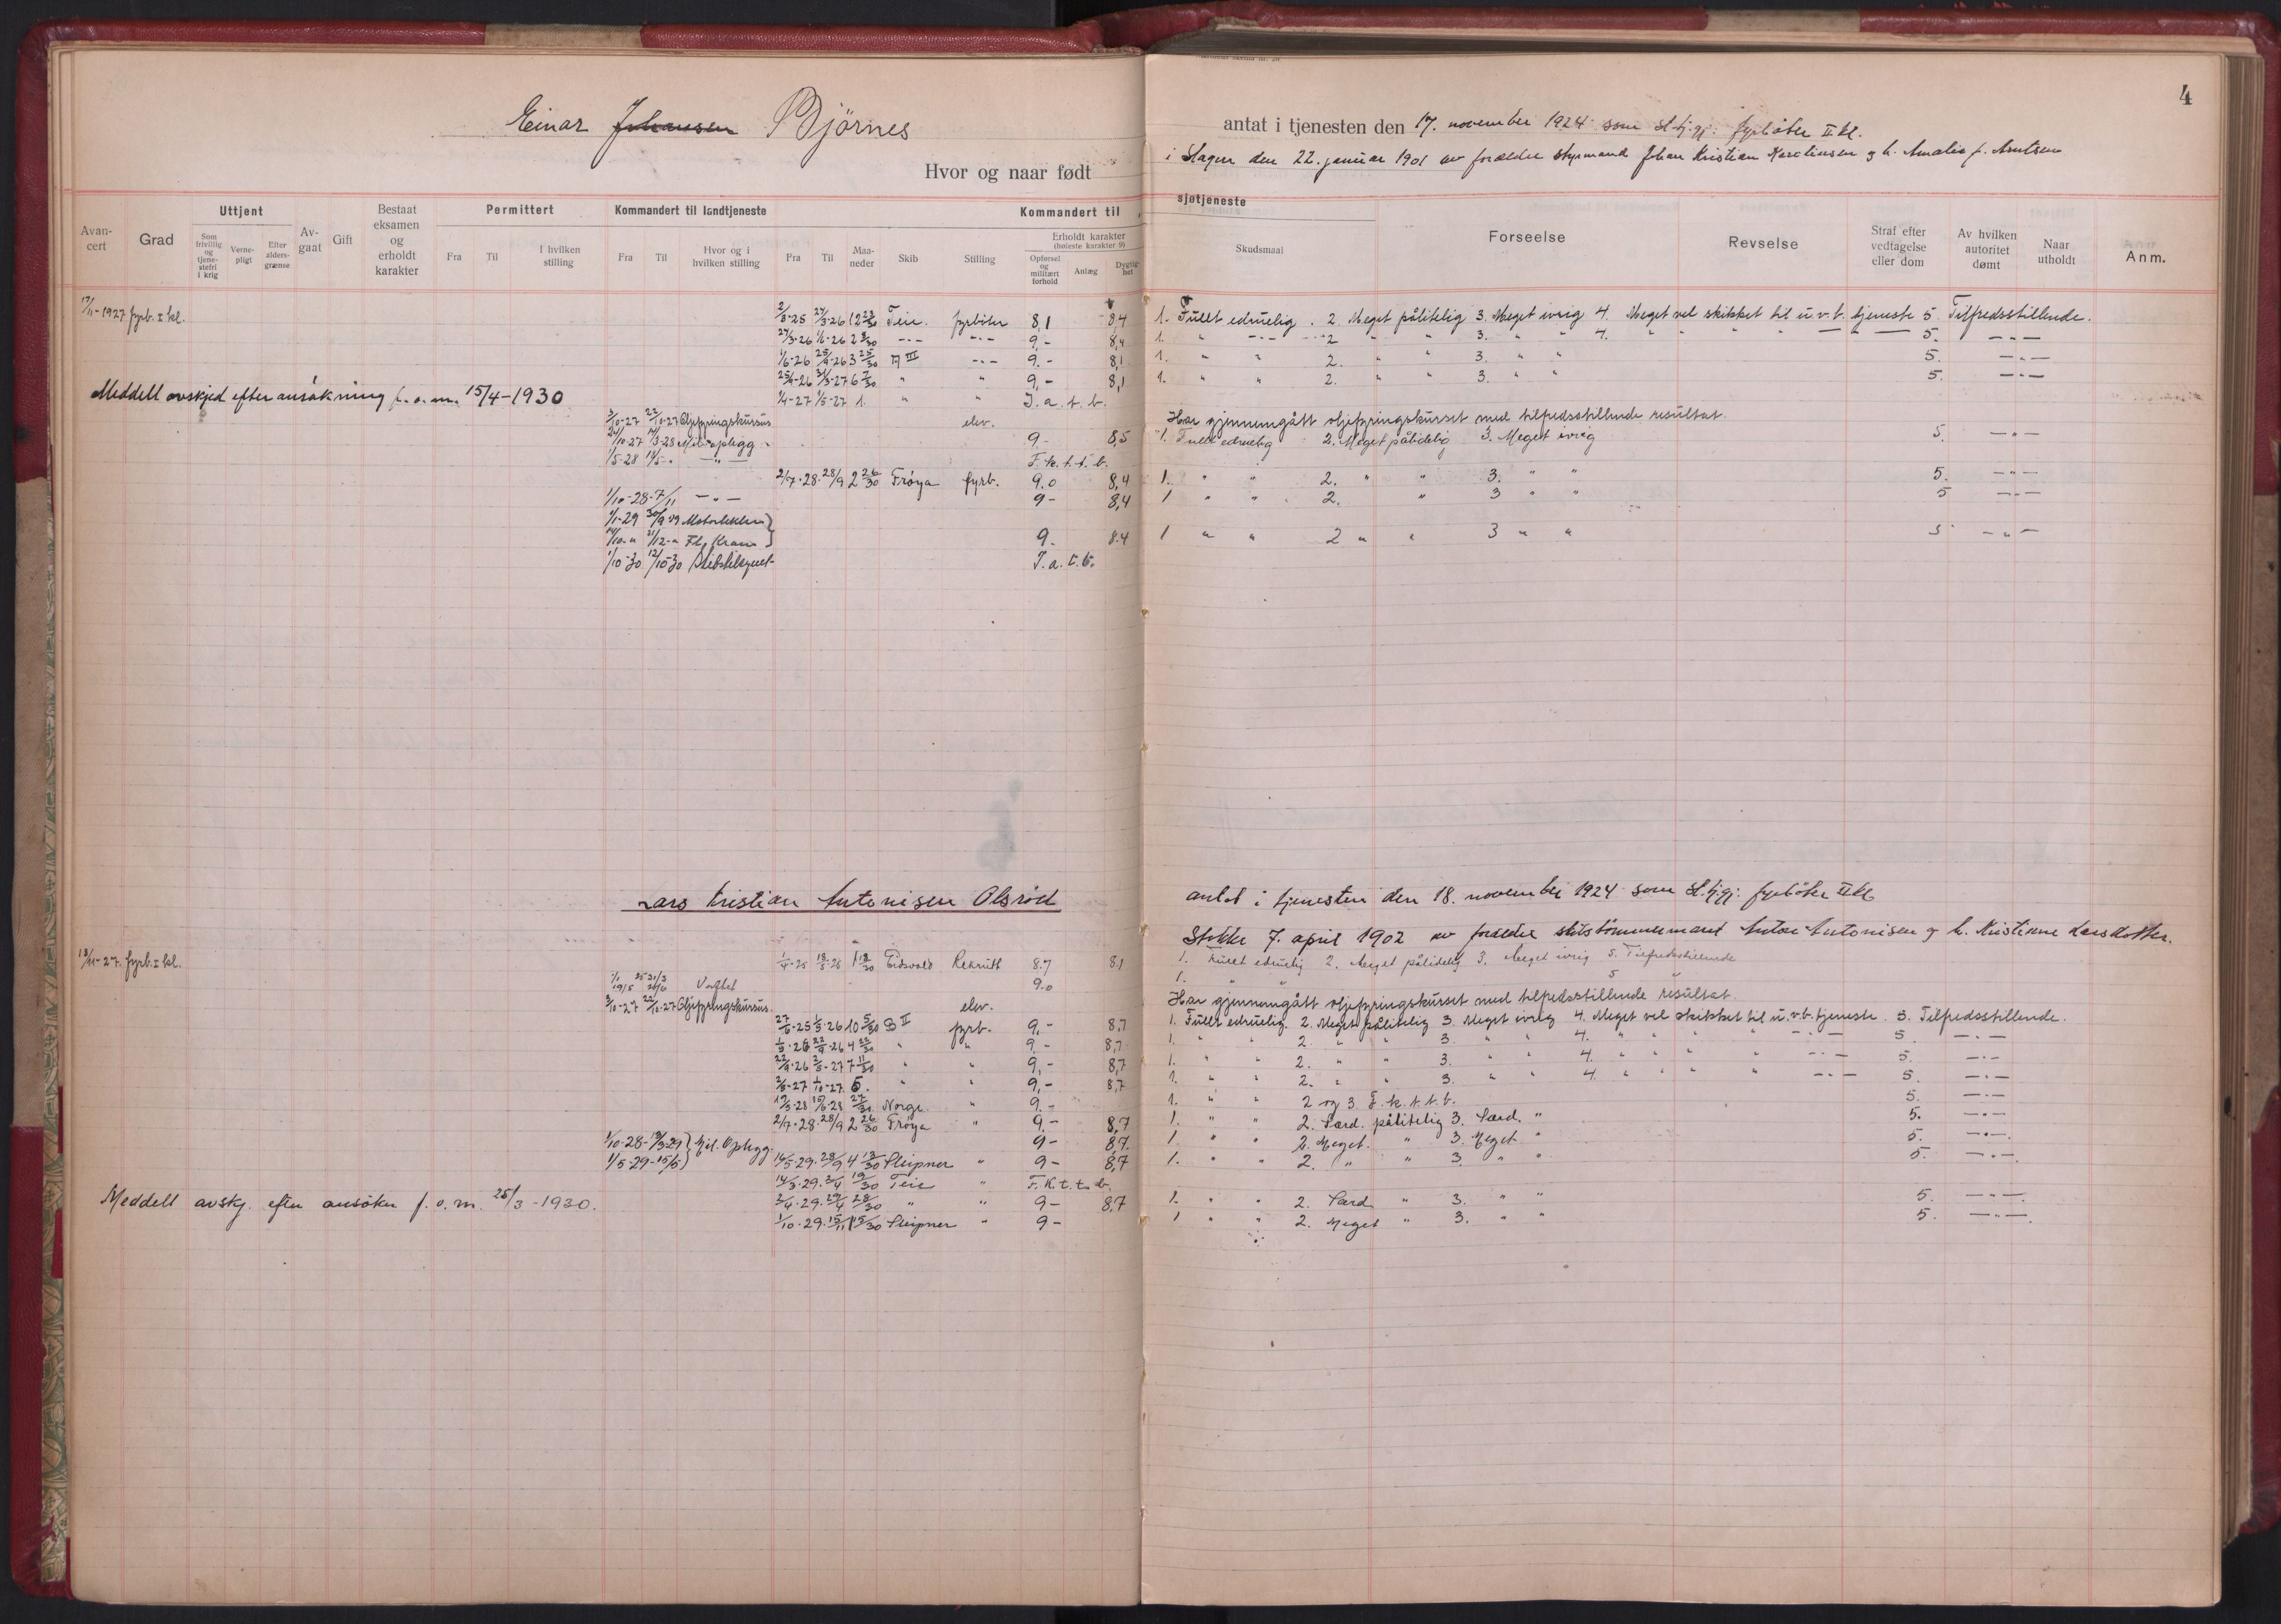 4
Einar Johansen Bjørnes
antat i tjenesten den 17. november 1924 som st.tj.gj. fyrbøter II kl.
Hvor og naar født
i Slagen den 22. januar 1901 av forældre styrmand Johan Kristian Karolinsen og h. Amalie f. Arntsen
Avancert
Grad
Uttjent
Som frivillig og tjenestefri i krig
Vernepligt
Efter aldersgrænse
Avgaat
Gift
Bestaat eksamen og erholdt karakter
Permittert
Fra
Til
I hvilken stilling
Kommandert til landtjeneste
Fra
Til
Hvor og i hvilken stilling
Kommandert til sjøtjeneste
Fra
Til
Maaneder
Skib
Stilling
Erholdt karakter (høieste karakter 9)
Opførsel og militært forhold
Anlæg
Dygtighet
Skudsmaal
Forseelse
Revselse
Straf efter vedtagelse eller dom
Av hvilken autoritet dømt
Naar utholdt
Anm.
17/11-1927 fyrb. I kl. 2/3-25 24/3-26 12 23/30 Teie. fyrbøter 8,1 8,4 1. Fullt edruelig. 2. Meget pålitelig 3. Meget ivrig 4. Meget vel skikket til u.v.b. tjeneste 5. Tilfredsstillende.
24/3-26 1/6-26 2 8/30 -"- -"- 9,- 8,4 1. " -"- 2 " " 3. " " 4. " " " " — — 5. —"—
1/6-26 25/9-26 3 25/30 A III -"- 9.- 8,1 1. " " 2. " " 3. " " 5. —"—
25/9-26 31/3-27 6 7/30 " " 9,- 8,1 1. " " 2. " " 3. " " 5. —"—
1/4-27 1/5-27 1. " " I.a.t.b.
Meddelt avskjed efter ansøkning f.o.m. 15/4-1930
3/10-27 22/10-27 Oljefyringskursus elev. Har gjennemgått oljefyringskurset med tilfredsstillende resultat.
24/10-27 14/3-28 Mil-oplegg. 9.- 8,5 1. Fullt edruelig 2. Meget pålidelig 3. Meget ivrig 5. —"—
1/5-28 14/5-" —"— F.k.t.t.b.
2/7-28. 28/9 2 26/30 Frøya fyrb. 9.0 8,4 1. " " 2. " " 3. " " 5. —"—
1/10-28-7/11 —"— 9- 8,4 1 " " 2. " 3 " " 5 —"—
1/1-29 30/9-29
14/10-" 21/12-" Fl. Kran 9. 8.4 1 " " 2 " " 3 " " 5 —"—
1/10-30 12/10-30 I.a.t.b.
Lars Kristian Antonisen Olsrød
antat i tjenesten den 18. november 1924 som st.tj.gj. fyrbøter II kl
Stokke 7. april 1902 av forældre skibstømmermand Anton Antonisen og h. Kristiane Larsdotter.
18/11-27. fyrb. I kl. 1/4-25 18/5-25 1 18/30 Eidsvold Rekrutt 8.7 8.1 1. Fullt edruelig 2. Meget pålidelig 3. Meget ivrig 5. Tilfredsstillende
1/1 25 31/3
19/5 26/6 Verftet 9.0 1. " " 5 "
3/10-27 22/10-27 Oljefyringskursus. elev. Har gjennemgått oljefyringskurset med tilfredsstillende resultat.
27/6-25 1/5-26 10 5/30 B II fyrb. 9,- 8,7 1. Fullt edruelig. 2. Meget pålitelig 3. Meget ivrig 4. Meget vel skikket til u.v.b. tjeneste. 5. Tilfredsstillende.
1/5-26 22/9-26 4 22/30 " " 9,- 8,7 1. " " 2. " " 3. " " 4. " " " " —"— 5 —"—
22/9-26 2/5-27 7 11/30 " " 9,- 8,7 1. " " 2. " " 3. " " 4. " " " " —"— 5. —"—
2/5-27 1/10-27. 5. " " 9,- 8,7 1. " " 2. " " 3. " " 4. " " " " —"— 5. —"—
19/5-28 15/6-28 27/30 Norge. " 9.- 1. " " 2 og 3. F.k.t.t.b. 5. —"—
2/7-28. 28/9 2 26/30 Frøya " 9.- 8,7 1. " " 2. Særd. pålitelig 3. Særd. " 5. —"—
1/10-28-13/3-29 } Mil. Oplegg. 9- 8,7. 1. " " 2. Meget. " 3. Meget " 5. —"—
1/5-29-15/5 } 16/5-29. 28/9 4 13/30 Sleipner " 9- 8,7 1. " " 2. " " 3. " " 5. —"—
14/3-29. 2/4 19/30 Teie " F.K.t.t.b.
Meddelt avskj. efter ansøkn f.o.m. 25/3-1930. 2/4-29. 29/4 28/30 " " 9- 8,7 1. " " 2. Særd. " 3. " " 5. —"—
1/10-29. 15/11 1 15/30 Sleipner " 9- 1 " " 2. Meget " 3. " " 5. —"—